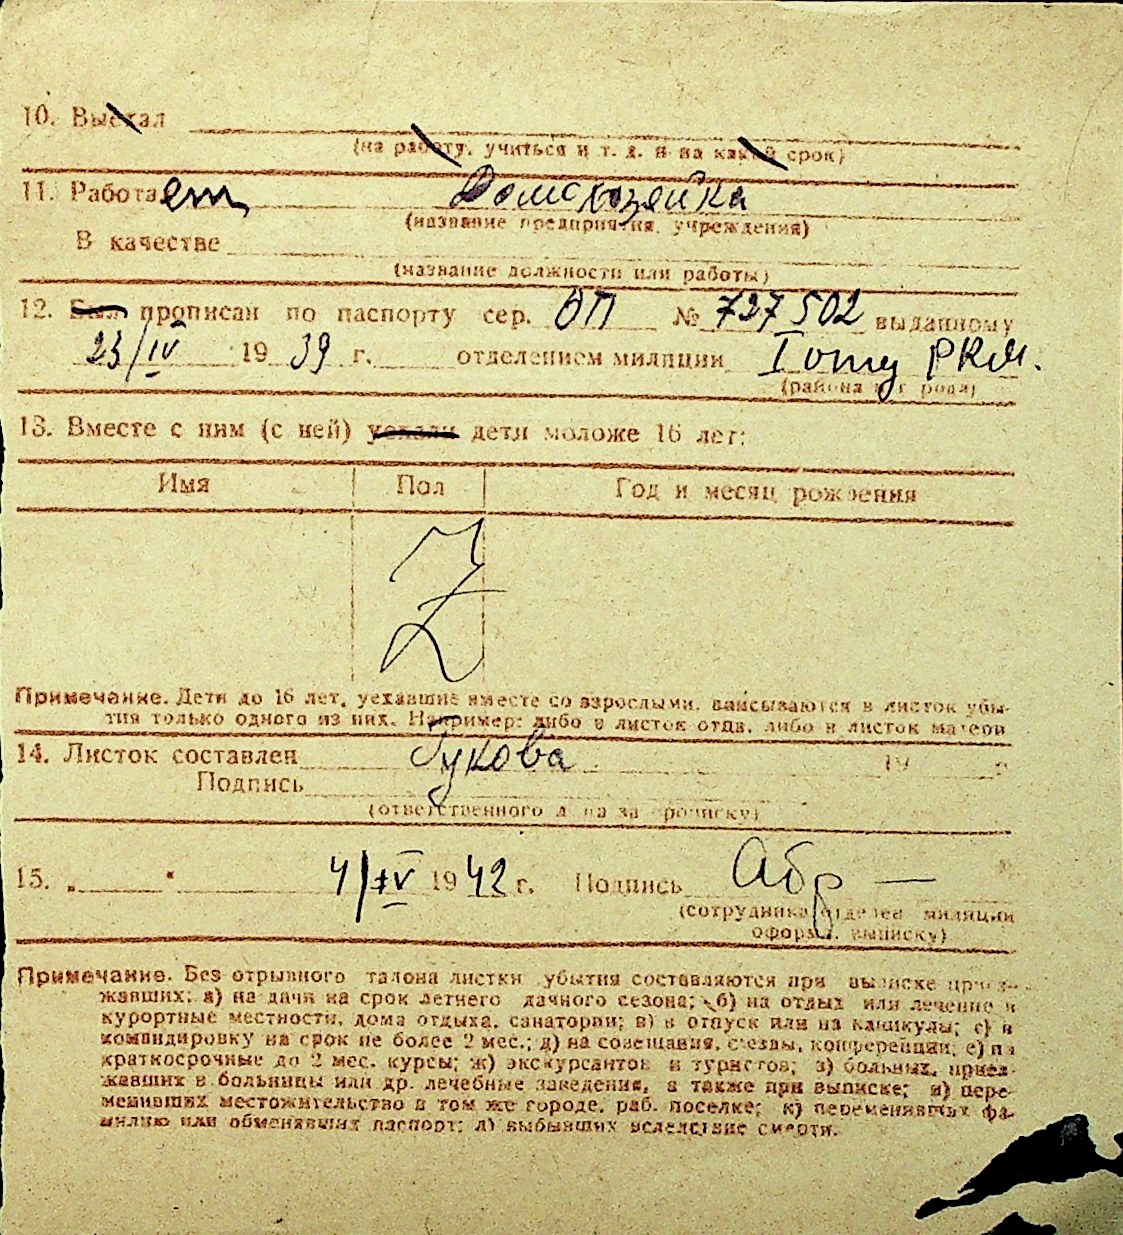 10. Выехал
(на работу, учиться и т. д. и на какой срок)
11. Работает Домохозяйка
(название предприятия, учреждения)
В качестве
(название должности или работы)
12. Был прописан по паспорту сер. ОП № 727502 выданному
23/IV 1939 г. отделением милиции I РКМ.
(района и города)
13. Вместе с ним (с ней) уехали дети моложе 16 лет:
Имя Пол Год и месяц рождения
Z
Примечание. Дети до 16 лет, уехавшие вместе со взрослыми, вписываются в листок убы-
тия только одного из них. Например: либо в листок отца, либо в листок матери
14. Листок составлен Гукова 19 г.
Подпись
(ответственного лица за прописку)
15. „ “ 4/IV 1942 г. Подпись Абр
(сотрудника отделен милиции
оформ. выписку)
Примечание. Без отрывного талона листки убытия составляются при выписке приез-
жавших: а) на дачи на срок летнего дачного сезона; б) на отдых или лечение в
курортные местности, дома отдыха, санатории; в) в отпуск или на каникулы; г) в
командировку на срок не более 2 мес.; д) на совещания, съезды, конференции; е) на
краткосрочные до 2 мес. курсы; ж) экскурсантов и туристов; з) больных, приез-
жавших в больницы или др. лечебные заведения, а также при выписке; и) пере-
менивших местожительство в том же городе, раб. поселке; к) переменявших фа-
милию или обменявших паспорт; л) выбывших вследствие смерти.